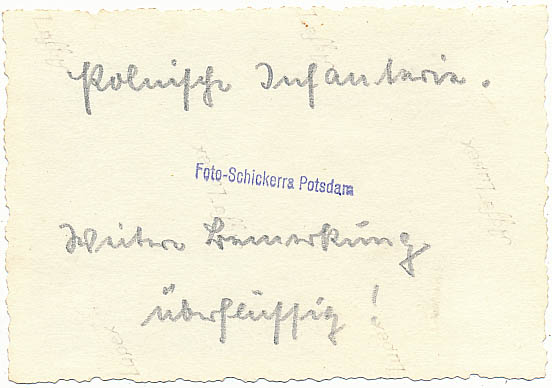 Polnische Infanterie.
Foto-Schickerra Potsdam
Weitere Bemerkung
überflüssig!